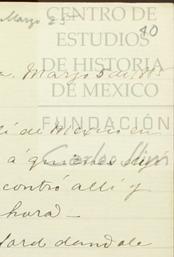 Marzo 25
CENTRO DE
40
ESTUDIOS
DE HISTORIA
Marzo 5 de
DE MÉXICO
de Mexico en
FUNDACIÓN
á quienes
Carlos Slim
contró allí y
hora —
ford dandole